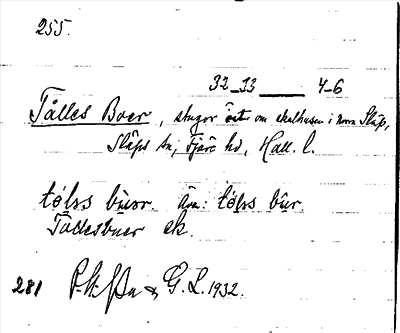 255.
32_33 ____ 4-6
Tålles Boer, stugor öster om skolhuset i norra Släp,
Släps sn, Fjäre hd, Hall. l.
tølss būər. Äv.: tølss būr.
Tållesbuer ek.
281 G. L. 1932.